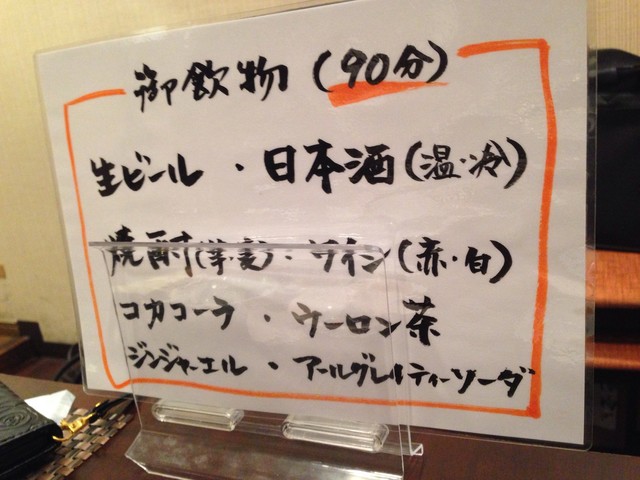 御飲物(90分)
生ビール ・ 日本酒(温・冷)
焼酎(芋・麦)・ワイン(赤・白)
コカコーラ ・ ウーロン茶
ジンジャーエル ・ アールグレイティーソーダ